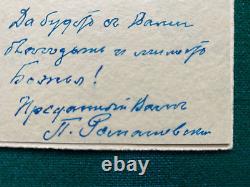 Да будетъ съ Вами
благодать и милость
Божья!
Преданный Вамъ
П. Романовски